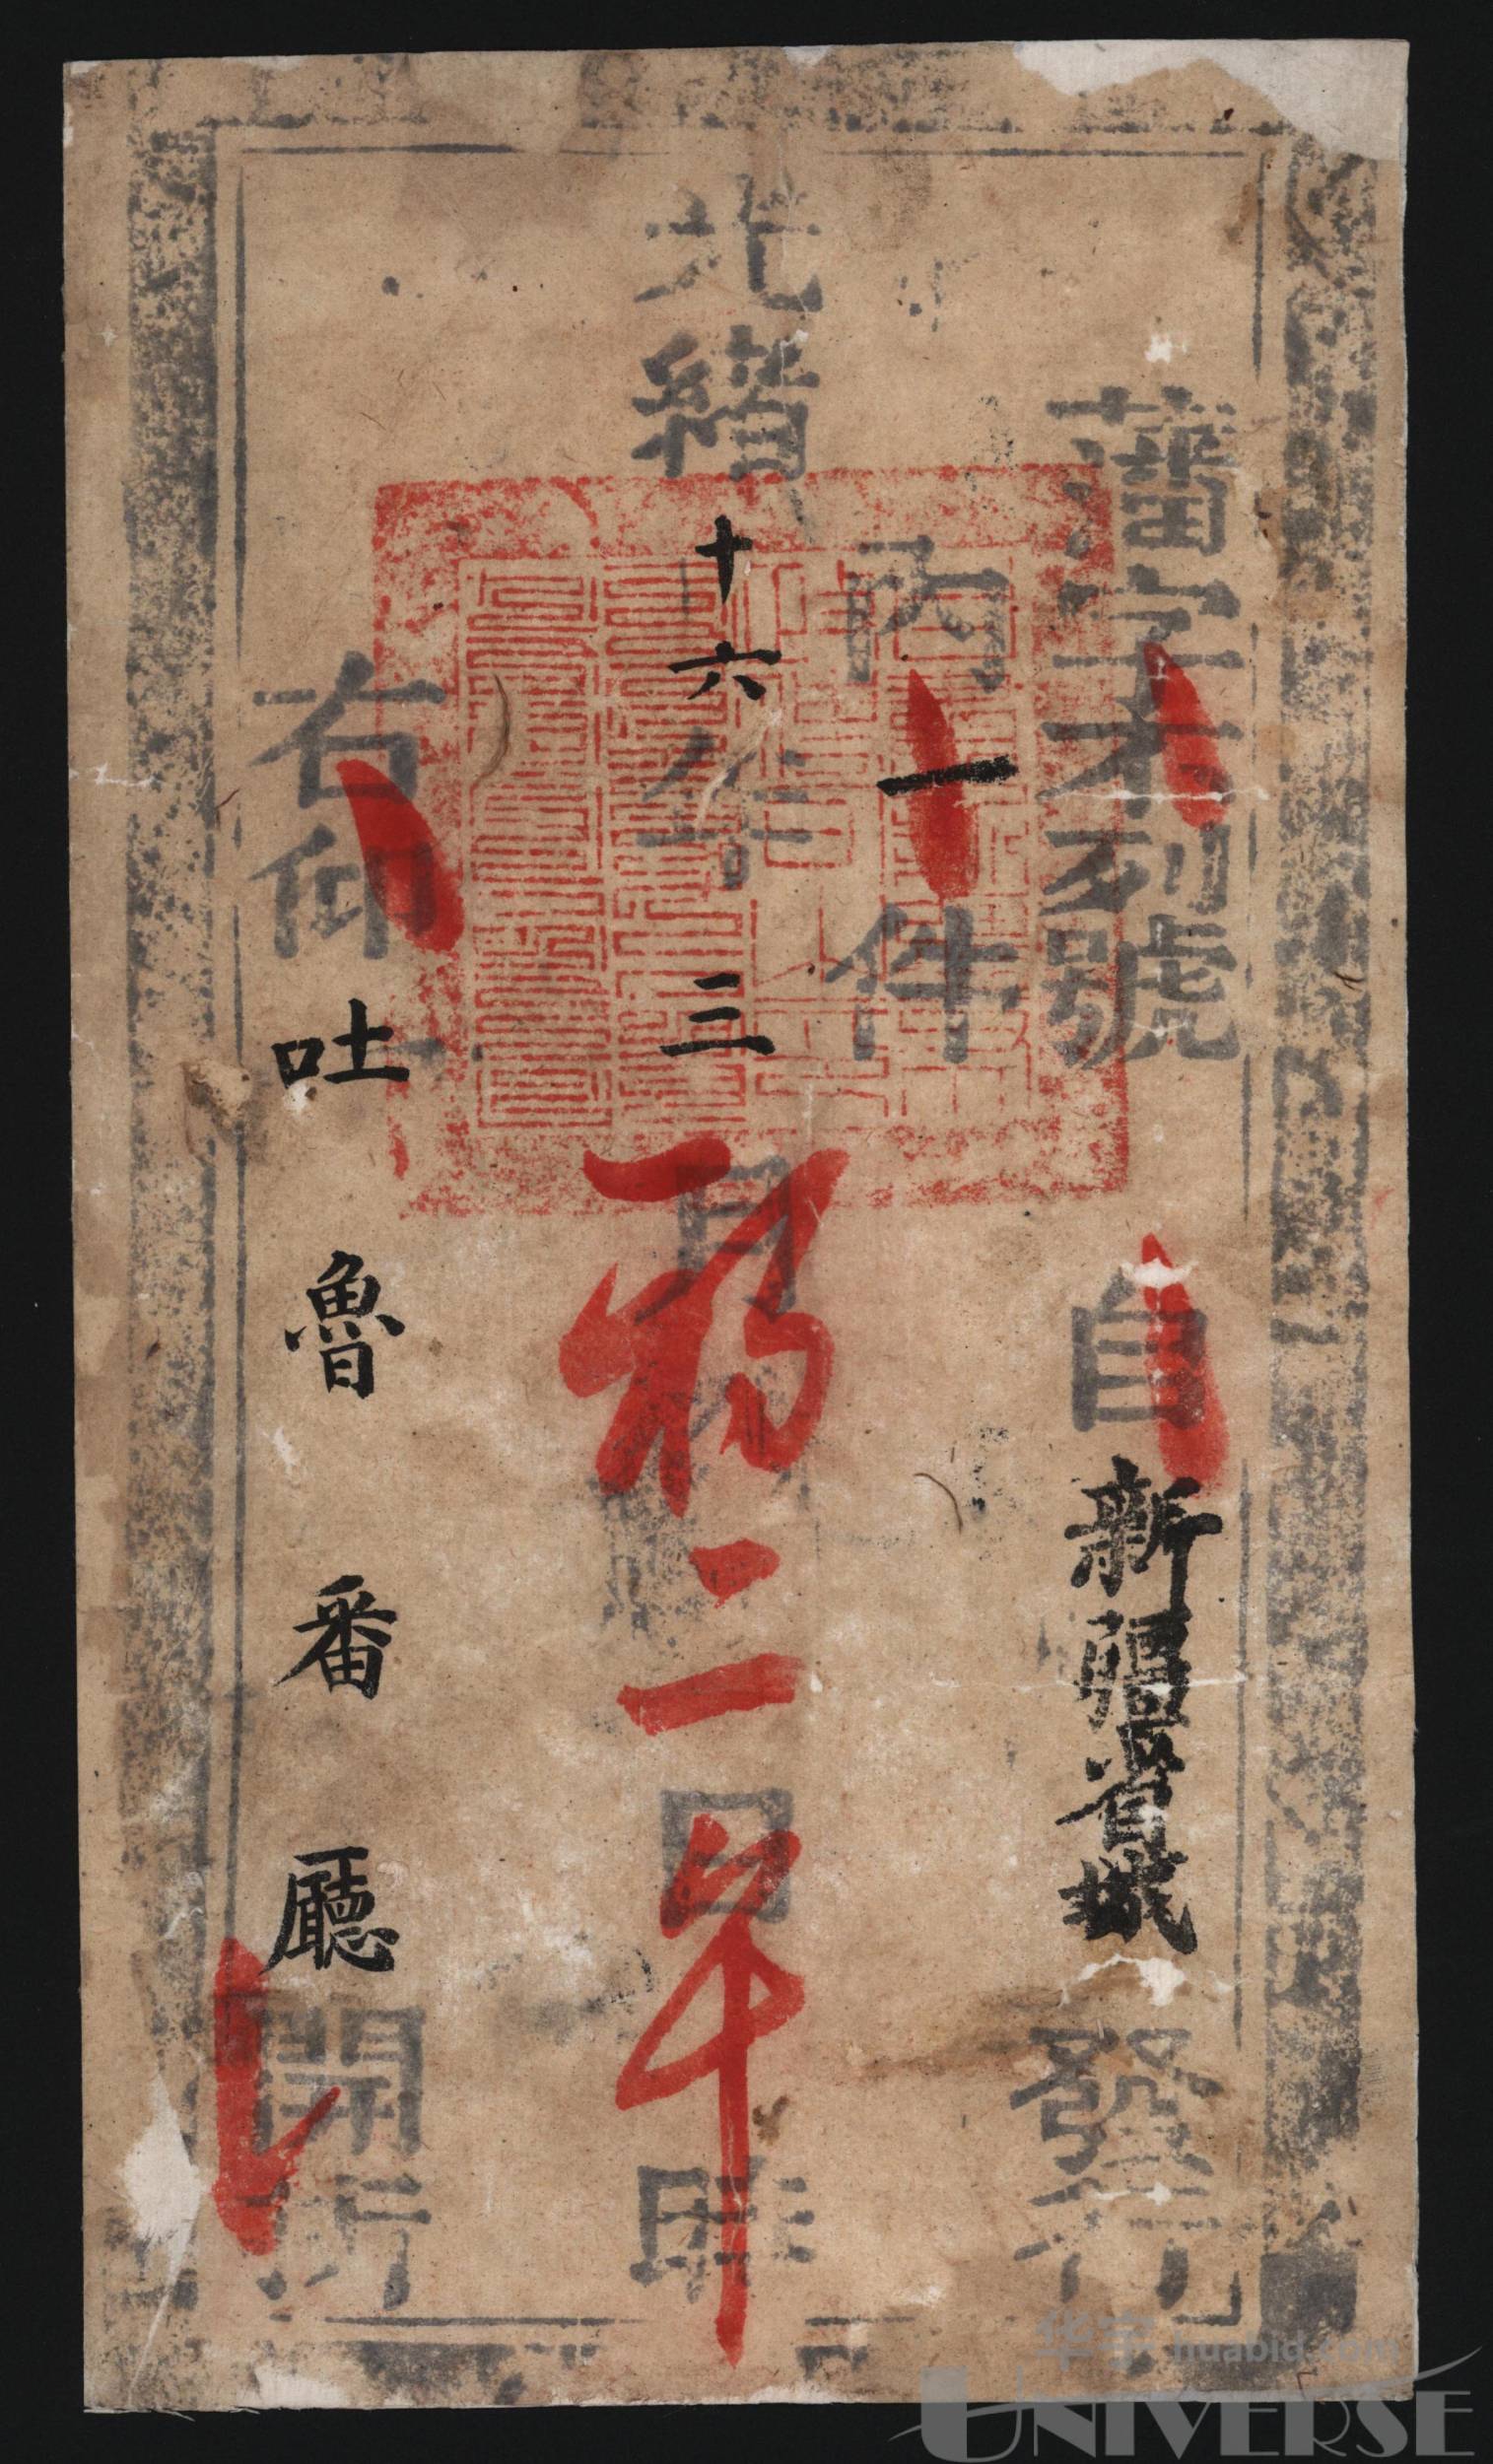 藩字不列號
自新疆省城發行
內一件
光緒十六年三月初二日午時
右仰吐魯番廳開拆
华宇 huabid.com
UNIVERSE